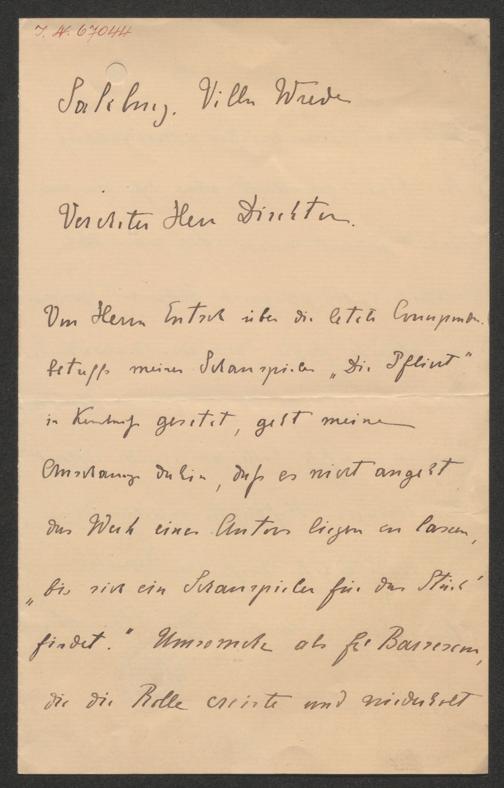 J. N. 67044
Salzburg. Villa Wrede
Verehrter Herr Direktor.
Von Herrn Entsch über die letzte Correspondenz
betreffs meines Schauspieles „Die Pflicht"
in Kenntniss gesetzt, geht meine
Anschauung dahin, dass es nicht angeht
das Werk eines Autors liegen zu lassen,
„bis sich ein Schauspieler für das Stück
findet." Umsomehr als Bassermann,
die die Rolle creirte und wiederholt